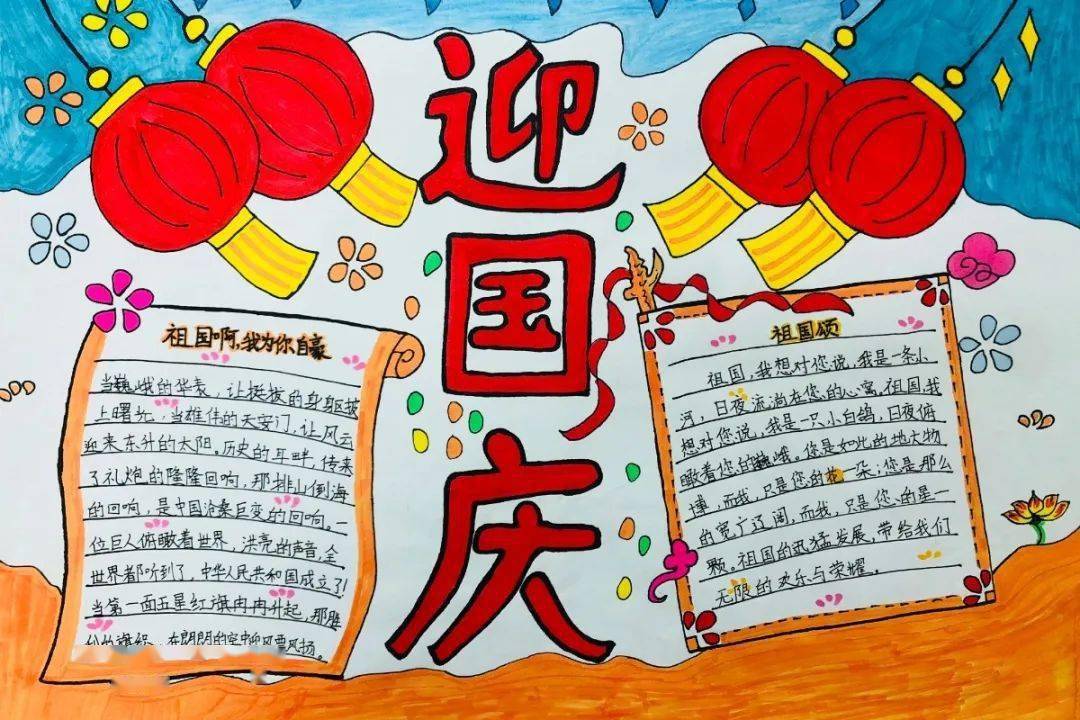 迎国庆
祖国啊,我为你自豪
当巍峨的华表，让挺拔的身躯披
上曙光；当雄伟的天安门，让风云
迎来东升的太阳。历史的耳畔，传来
了礼炮的隆隆回响，那排山倒海
的回响，是中国沧桑巨变的回响。一
位巨人俯瞰着世界，洪亮的声音，全
世界都听到了，中华人民共和国成立了！
当第一面五星红旗冉冉升起，那胜
利的旗帜，在朗朗的空中迎风飘扬。
祖国颂
祖国，我想对您说，我是一条小
河，日夜流淌在您的心窝，祖国我
想对您说，我是一只小白鸽，日夜俯
瞰着您的巍峨。您是如此的地大物
博，而我，只是您的花一朵；您是那么
的宽广辽阔，而我，只是您的星一
颗。祖国的迅猛发展，带给我们
无限的欢乐与荣耀。